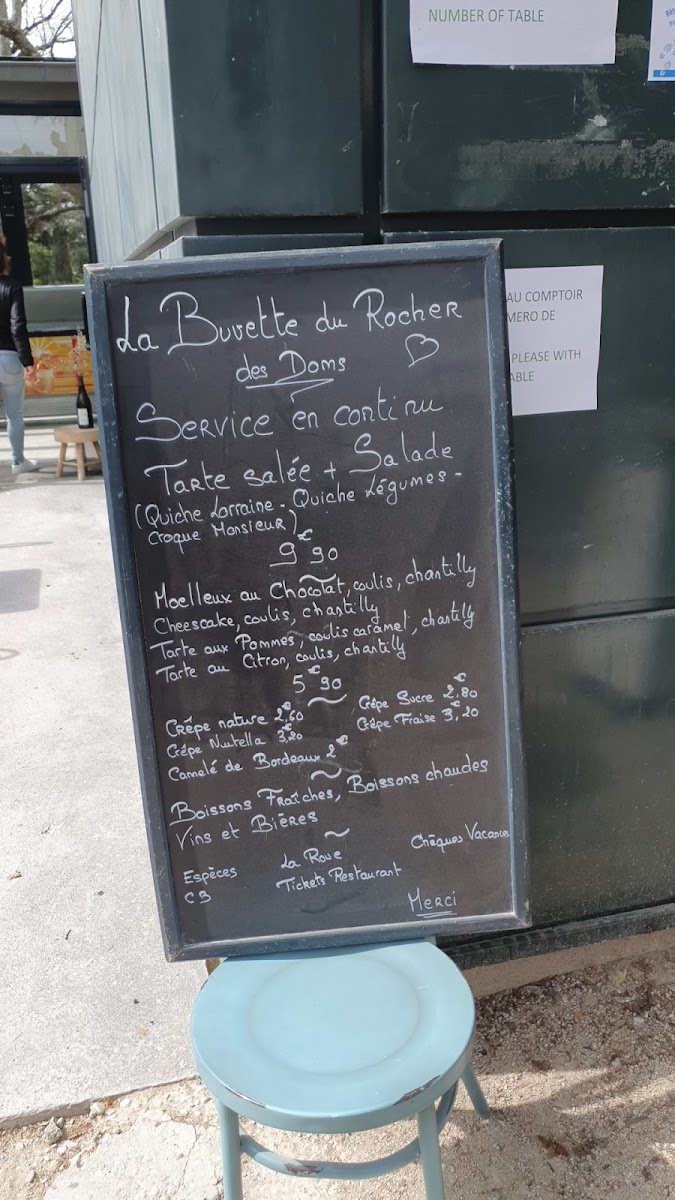 NUMBER OF TABLE
AU COMPTOIR
MERO DE
PLEASE WITH
ABLE
La Buvette du Rocher
des Doms
Service en continu
Tarte salée + Salade
(Quiche Lorraine - Quiche Légumes -
Croque Monsieur)
9€90
Moelleux au Chocolat, coulis, chantilly
Cheescake, coulis, chantilly
Tarte aux Pommes, coulis caramel, chantilly
Tarte au Citron, coulis, chantilly
5€90
Crêpe nature 2,60€ Crêpe Sucre 2,80€
Crêpe Nutella 3,20€ Crêpe Fraise 3,20€
Canelé de Bordeaux 2€
Boissons Fraîches, Boissons chaudes
Vins et Bières
Espèces La Roue Chèques Vacances
CB Tickets Restaurant
Merci